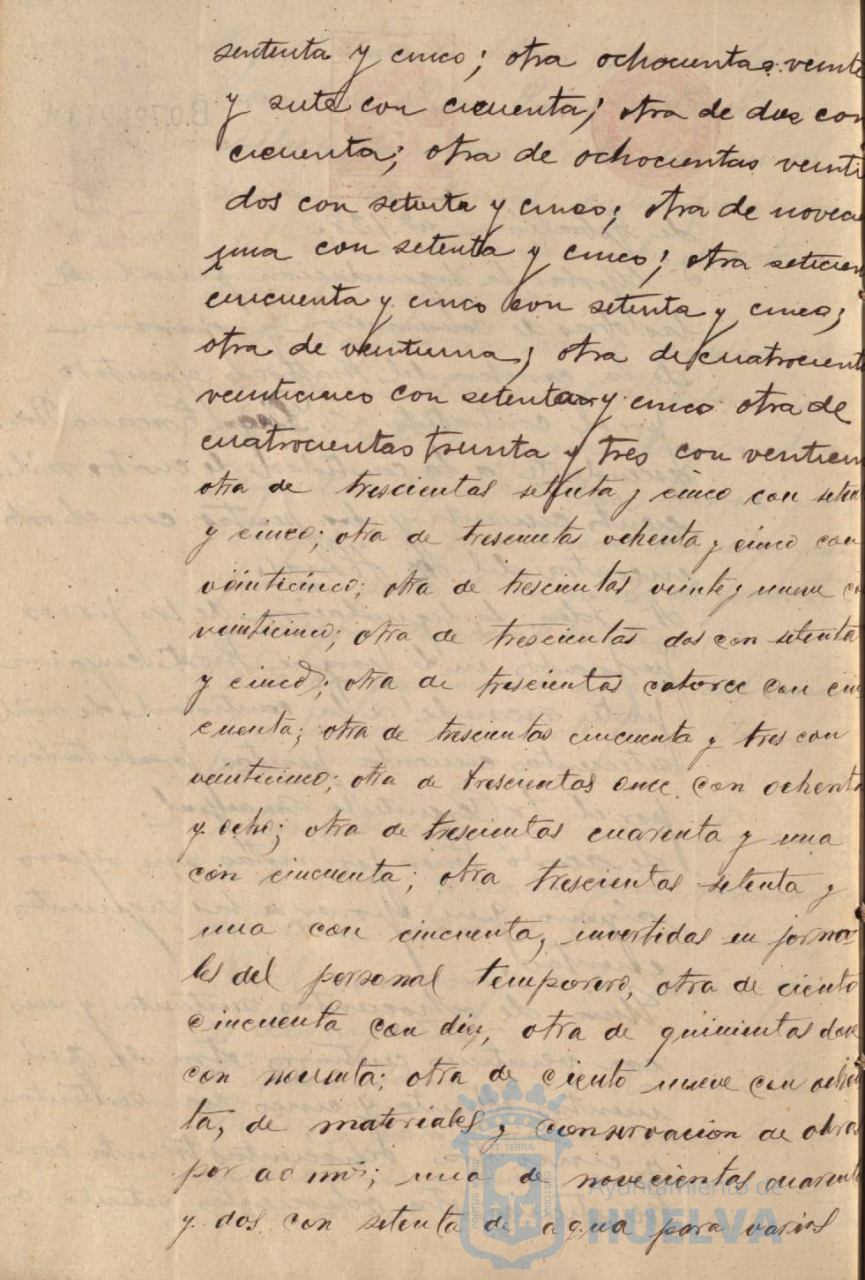 sententa y cinco; otra ochocientas veinte
y siete con cicuenta; otra de dos con
cicuenta; otra de ochocientas veinti
dos con setenta y cinco; otra de novecie
una con setenta y cinco; otra seticien
cincuenta y cinco con setenta y cinco;
otra de ventiuna; otra de cuatrocient
veinticinco con setenta y cinco otra de
cuatrocientas trunta y tres con venticin
otra de trescientas setenta y cinco con seten
y cinco; otra de trescientas ochenta y cinco con
veinticinco; otra de trescientas veinte y nueve co
veinticinco; otra de trescientas dos con setenta
y cinco; otra de trescientas catorce con cin
cuenta; otra de trescientas cincuenta y tres con
veinticinco; otra de trescientas once con ochenta
y ocho; otra de trescientas cuarenta y una
con cincuenta; otra trescientas setenta y
una con cincuenta, invertidas en jorna
les del personal temporero, otra de ciento
cincuenta con diez, otra de quinientas doce
con noventa; otra de ciento nueve con ochen
ta, de materiales y conservacion de obras
por adm.; una de novecientas cuarenta
y dos con setenta de agua para varios
Ayuntamiento de
HUELVA